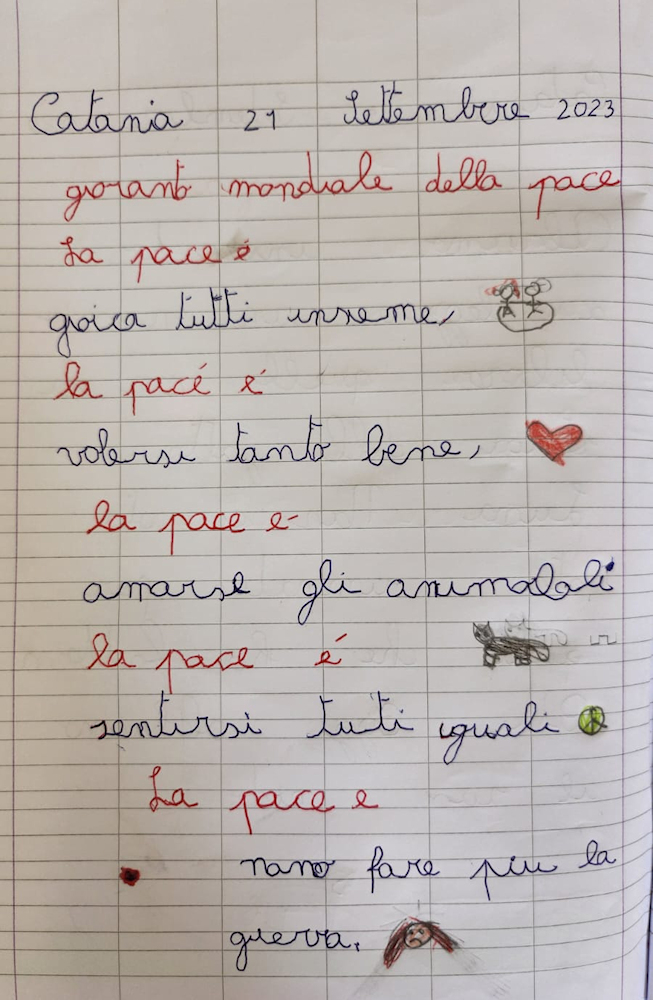 Catania 21 Settembre 2023
gioranto mondiale della pace
La pace é
gioica tutti insieme,
la pacé é
volersi tanto bene,
la pace e
amarse gli animalali
la pace é
sentirsi tuti iguali
La pace e
nano fare piu la
guerra.